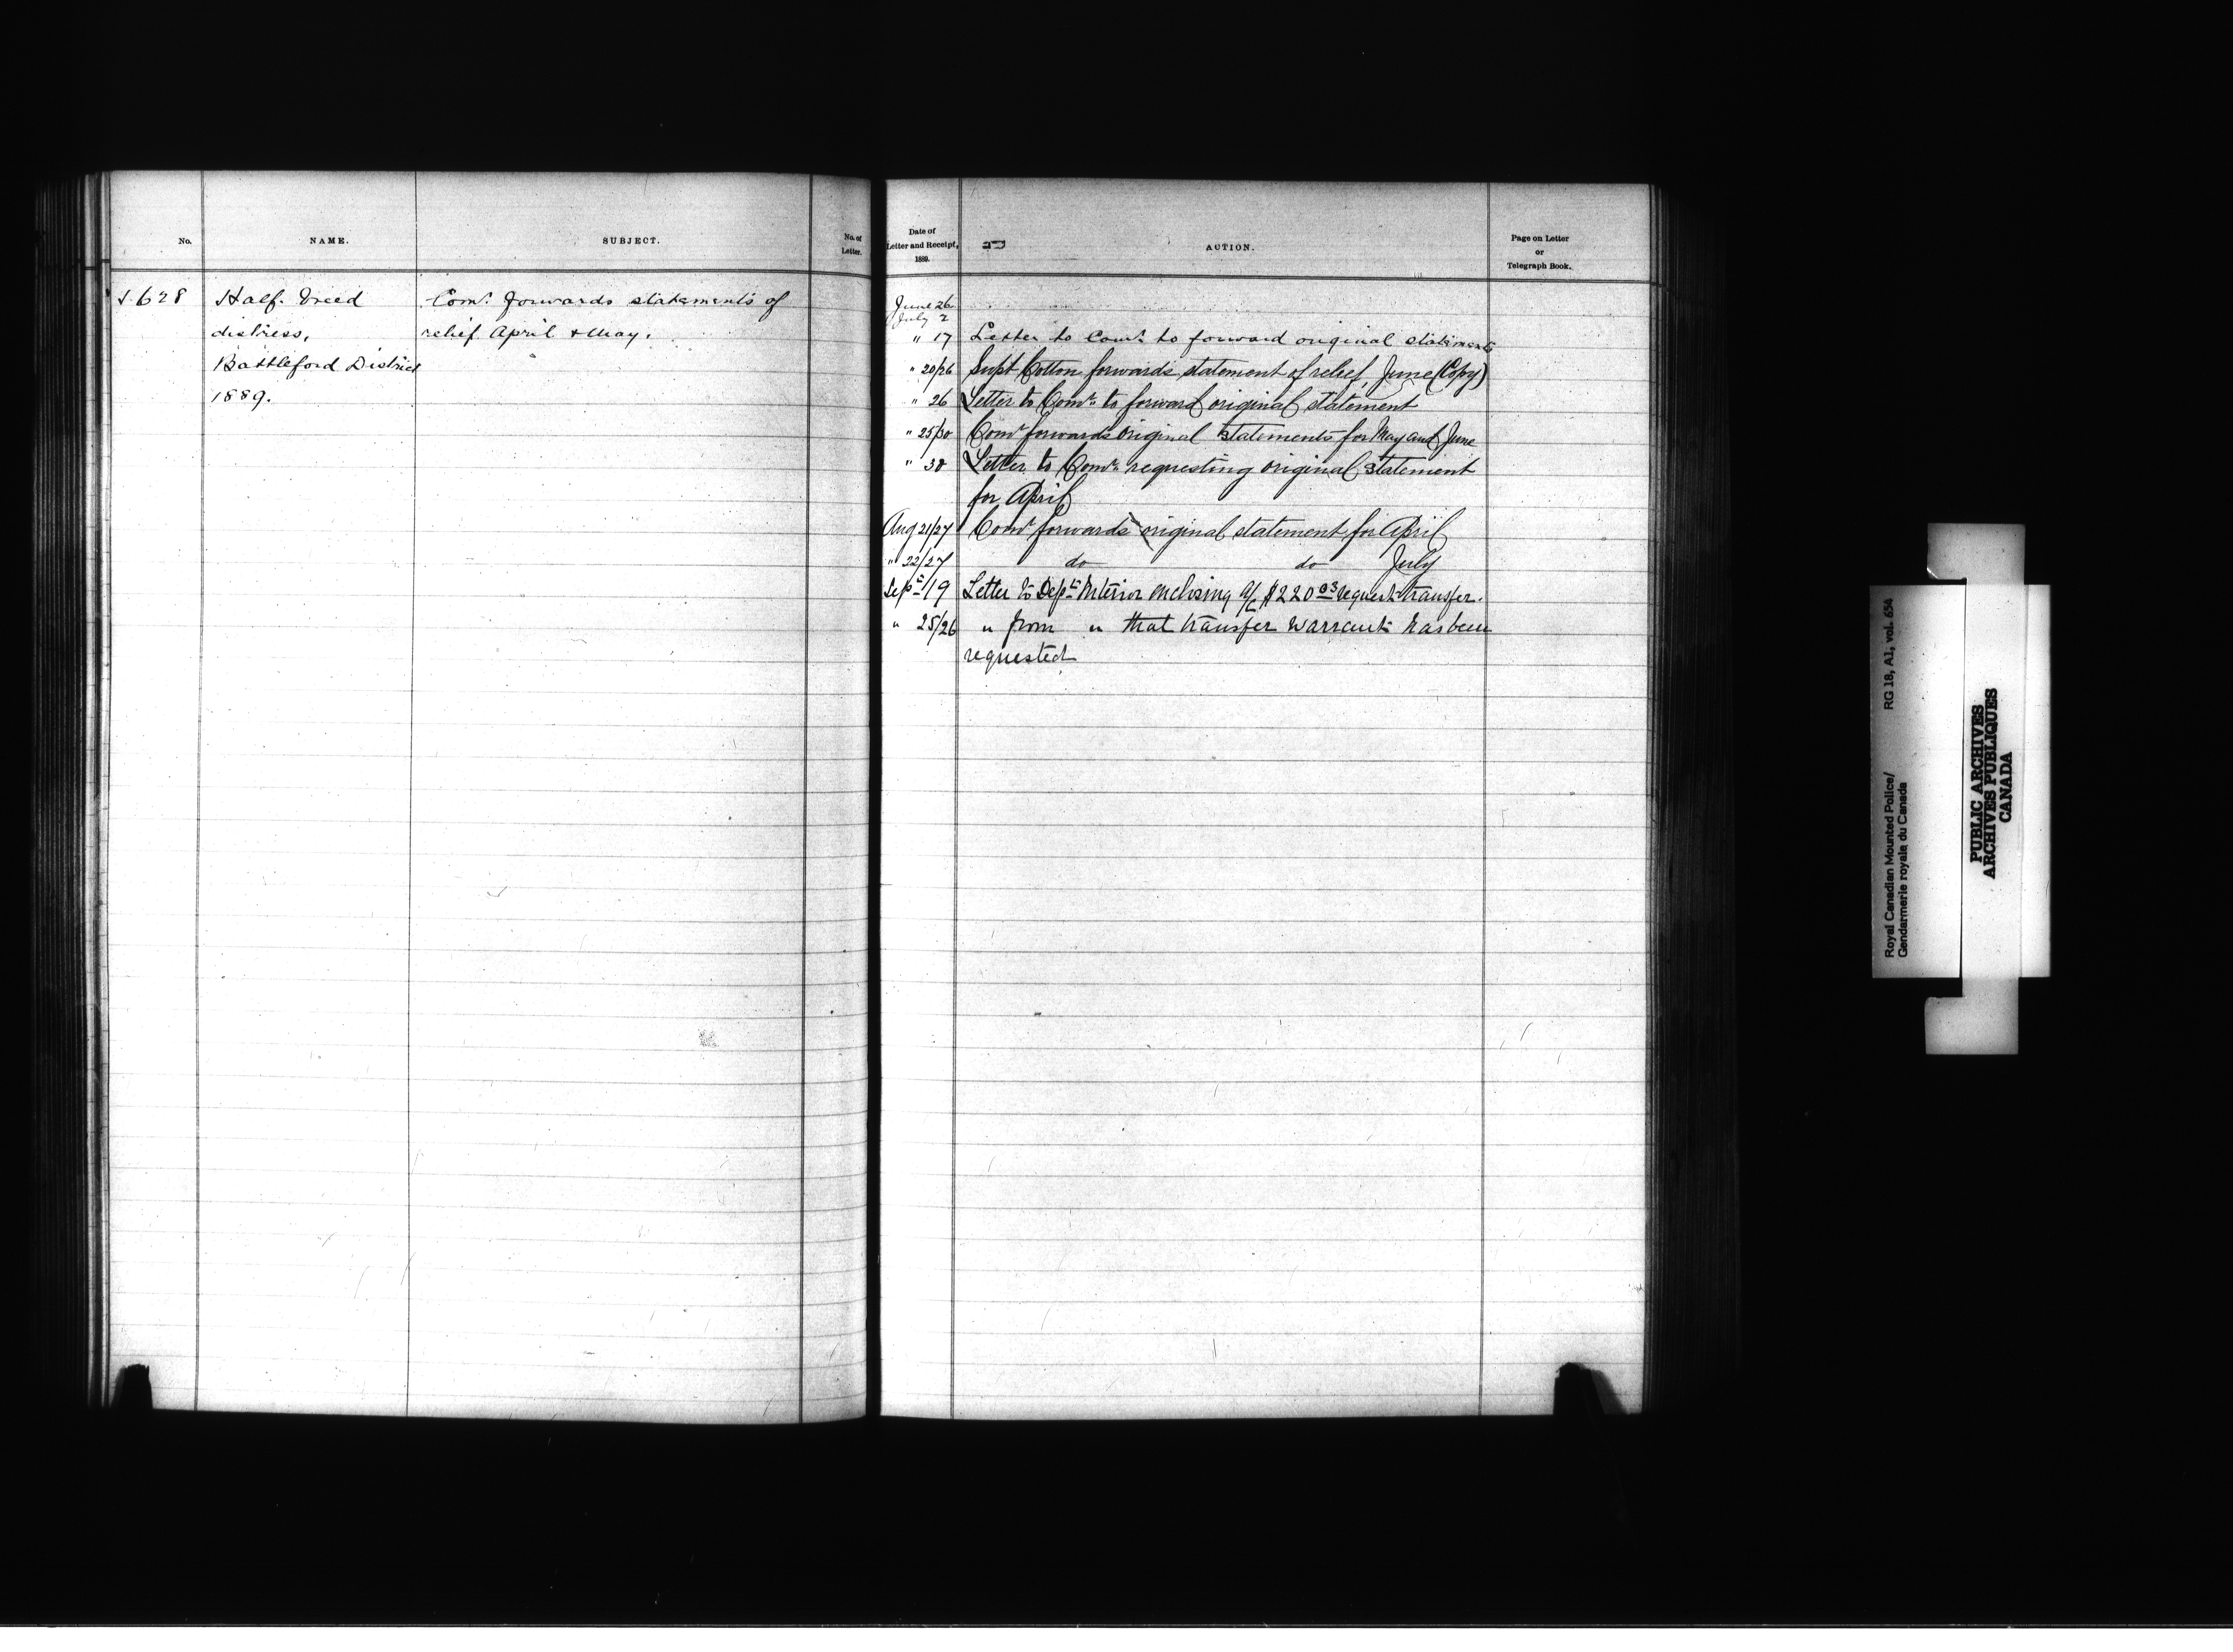 No.
NAME.
SUBJECT.
No. of
Letter.
628
Half-breed
distress,
Battleford District
1889.
Comr. forwards statements of
relief April & May.
Date of
Letter and Receipt,
1889.
ACTION.
Page on Letter
or
Telegraph Book.
June 26
July 2
" 17 Letter to Comr. to forward original statements
" 20/26 Supt Cotton forwards statement of relief, June (Copy)
" 26 Letter to Comr. to forward original statement
" 25/30 Comr forwards original statements for May and June
" 30 Letter to Comr. requesting original statement
for April
Aug 21/27 Comr forwards original statement for April
" 22/27 do do July
Sept 19 Letter to Dept Interior enclosing a/c $220.03 request transfer.
" 25/26 " from " that transfer warrant has been
requested
Royal Canadian Mounted Police/
Gendarmerie royale du Canada
RG 18, A1, vol. 654
PUBLIC ARCHIVES
ARCHIVES PUBLIQUES
CANADA